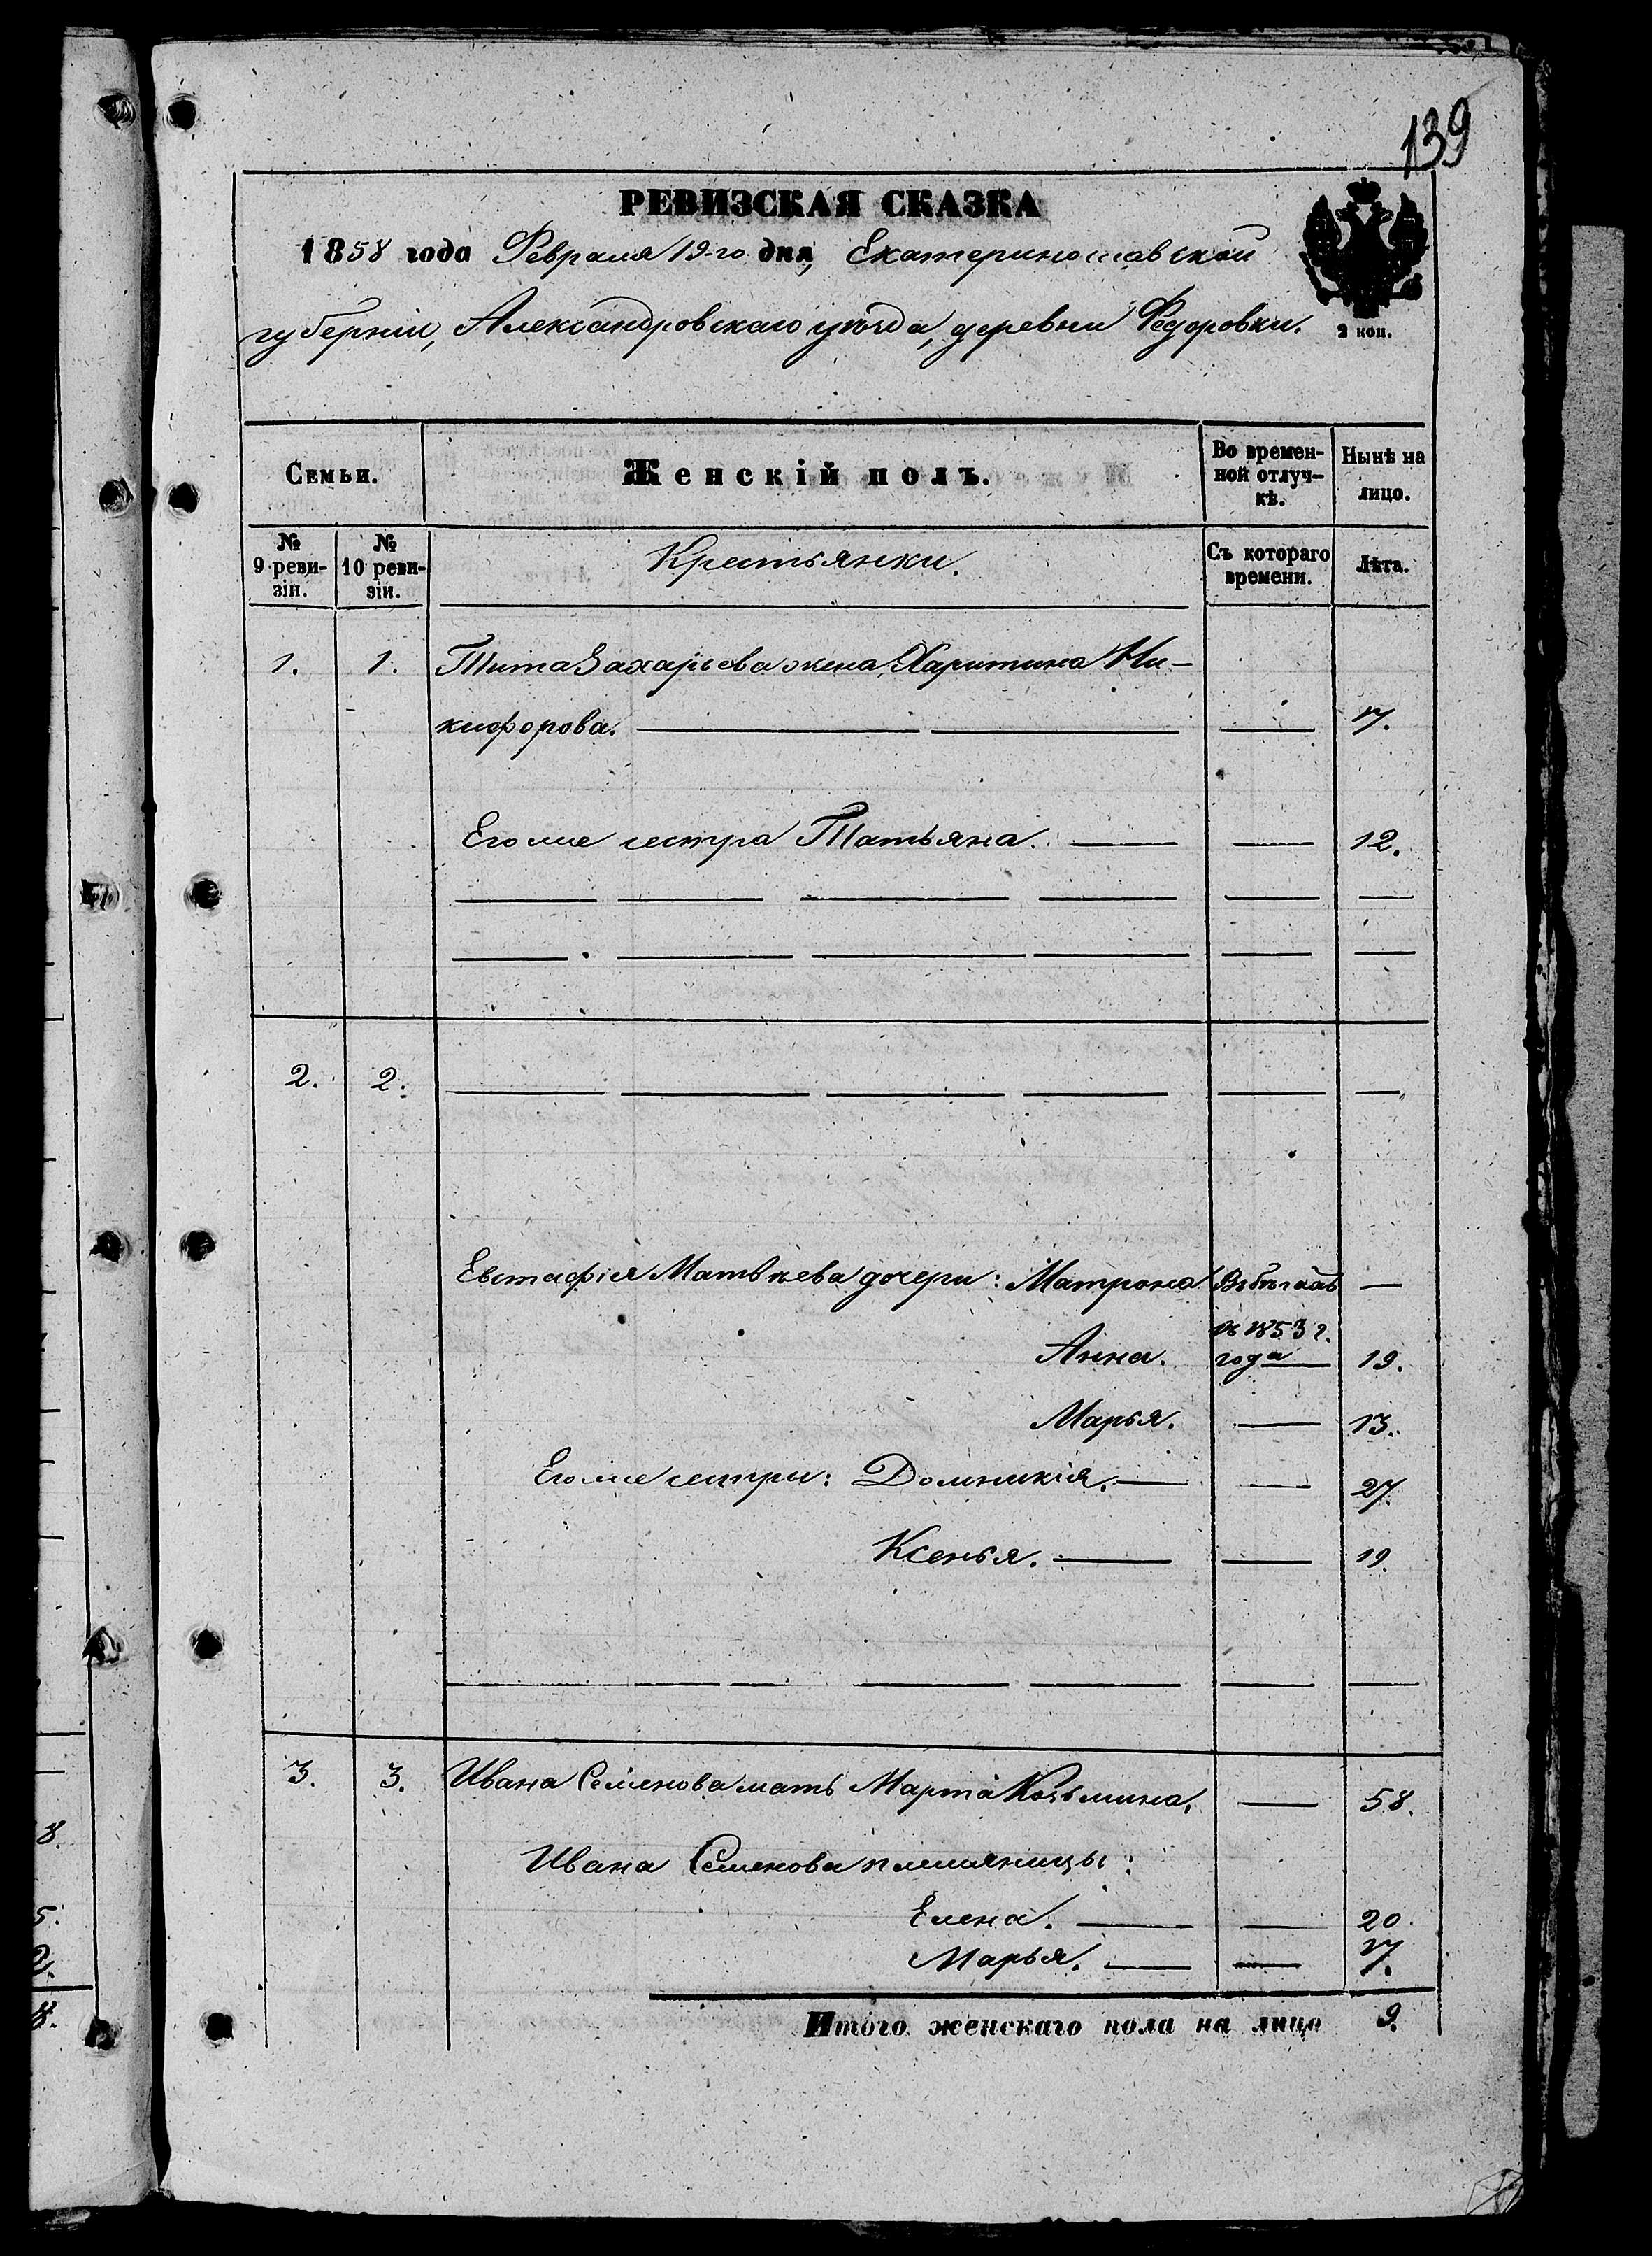 139
РЕВИЗСКАЯ СКАЗКА
1858 года Февраля 19-го дня, Екатеринославской
губерніи, Александровскаго уѣзда, деревни Федоровки.
2 коп.
Семьи. Женскій полъ. Во времен-
ной отлуч-
кѣ. Нынѣ на
лицо.
№
9 реви-
зіи. №
10 реви-
зіи. Крестьянки. Съ котораго
времени. Лѣта.
1. 1. Тита Захарьева жена Харитина Ни-
кифорова. 17.
Его же сестра Татьяна. 12.
2. 2.
Евстафія Матвѣева дочери: Матрона Въ бѣгахъ
съ 1853 г.
Анна. года 19.
Марья. 13.
Его же сестры: Домникія. 27.
Ксенья. 19.
3. 3. Ивана Семенова мать Марта Козьмина. 58.
Ивана Семенова племяницы:
Елена. 20.
Марья. 17.
Итого женскаго пола на лицо 9.
8.
5.
2.
8.